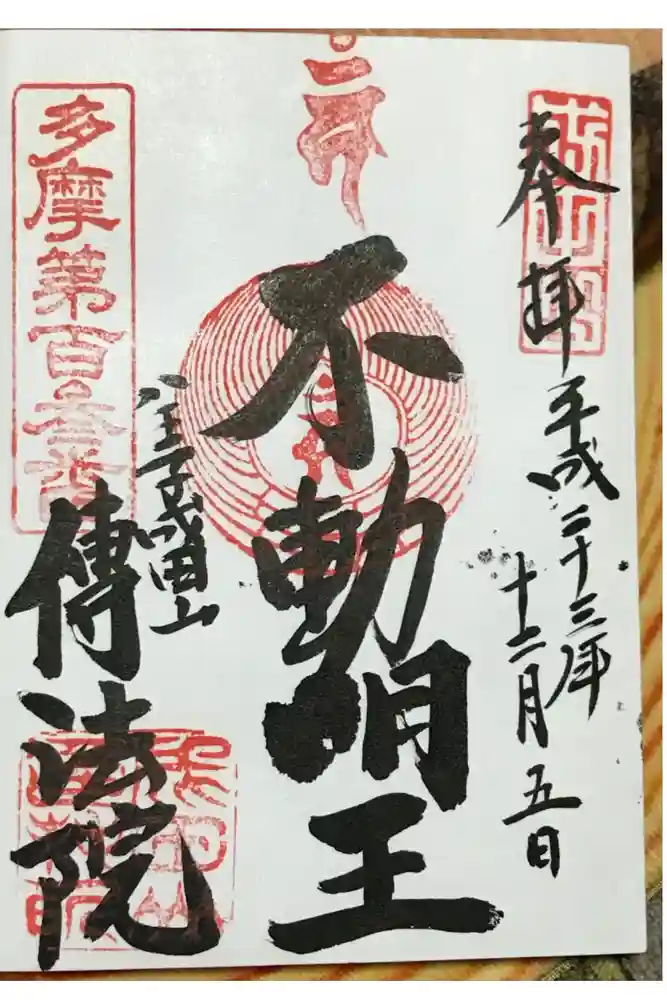 奉拝
平成二十三年
十二月五日
不動明王
八王子成田山
傳法院
多摩第百壱番
成田山